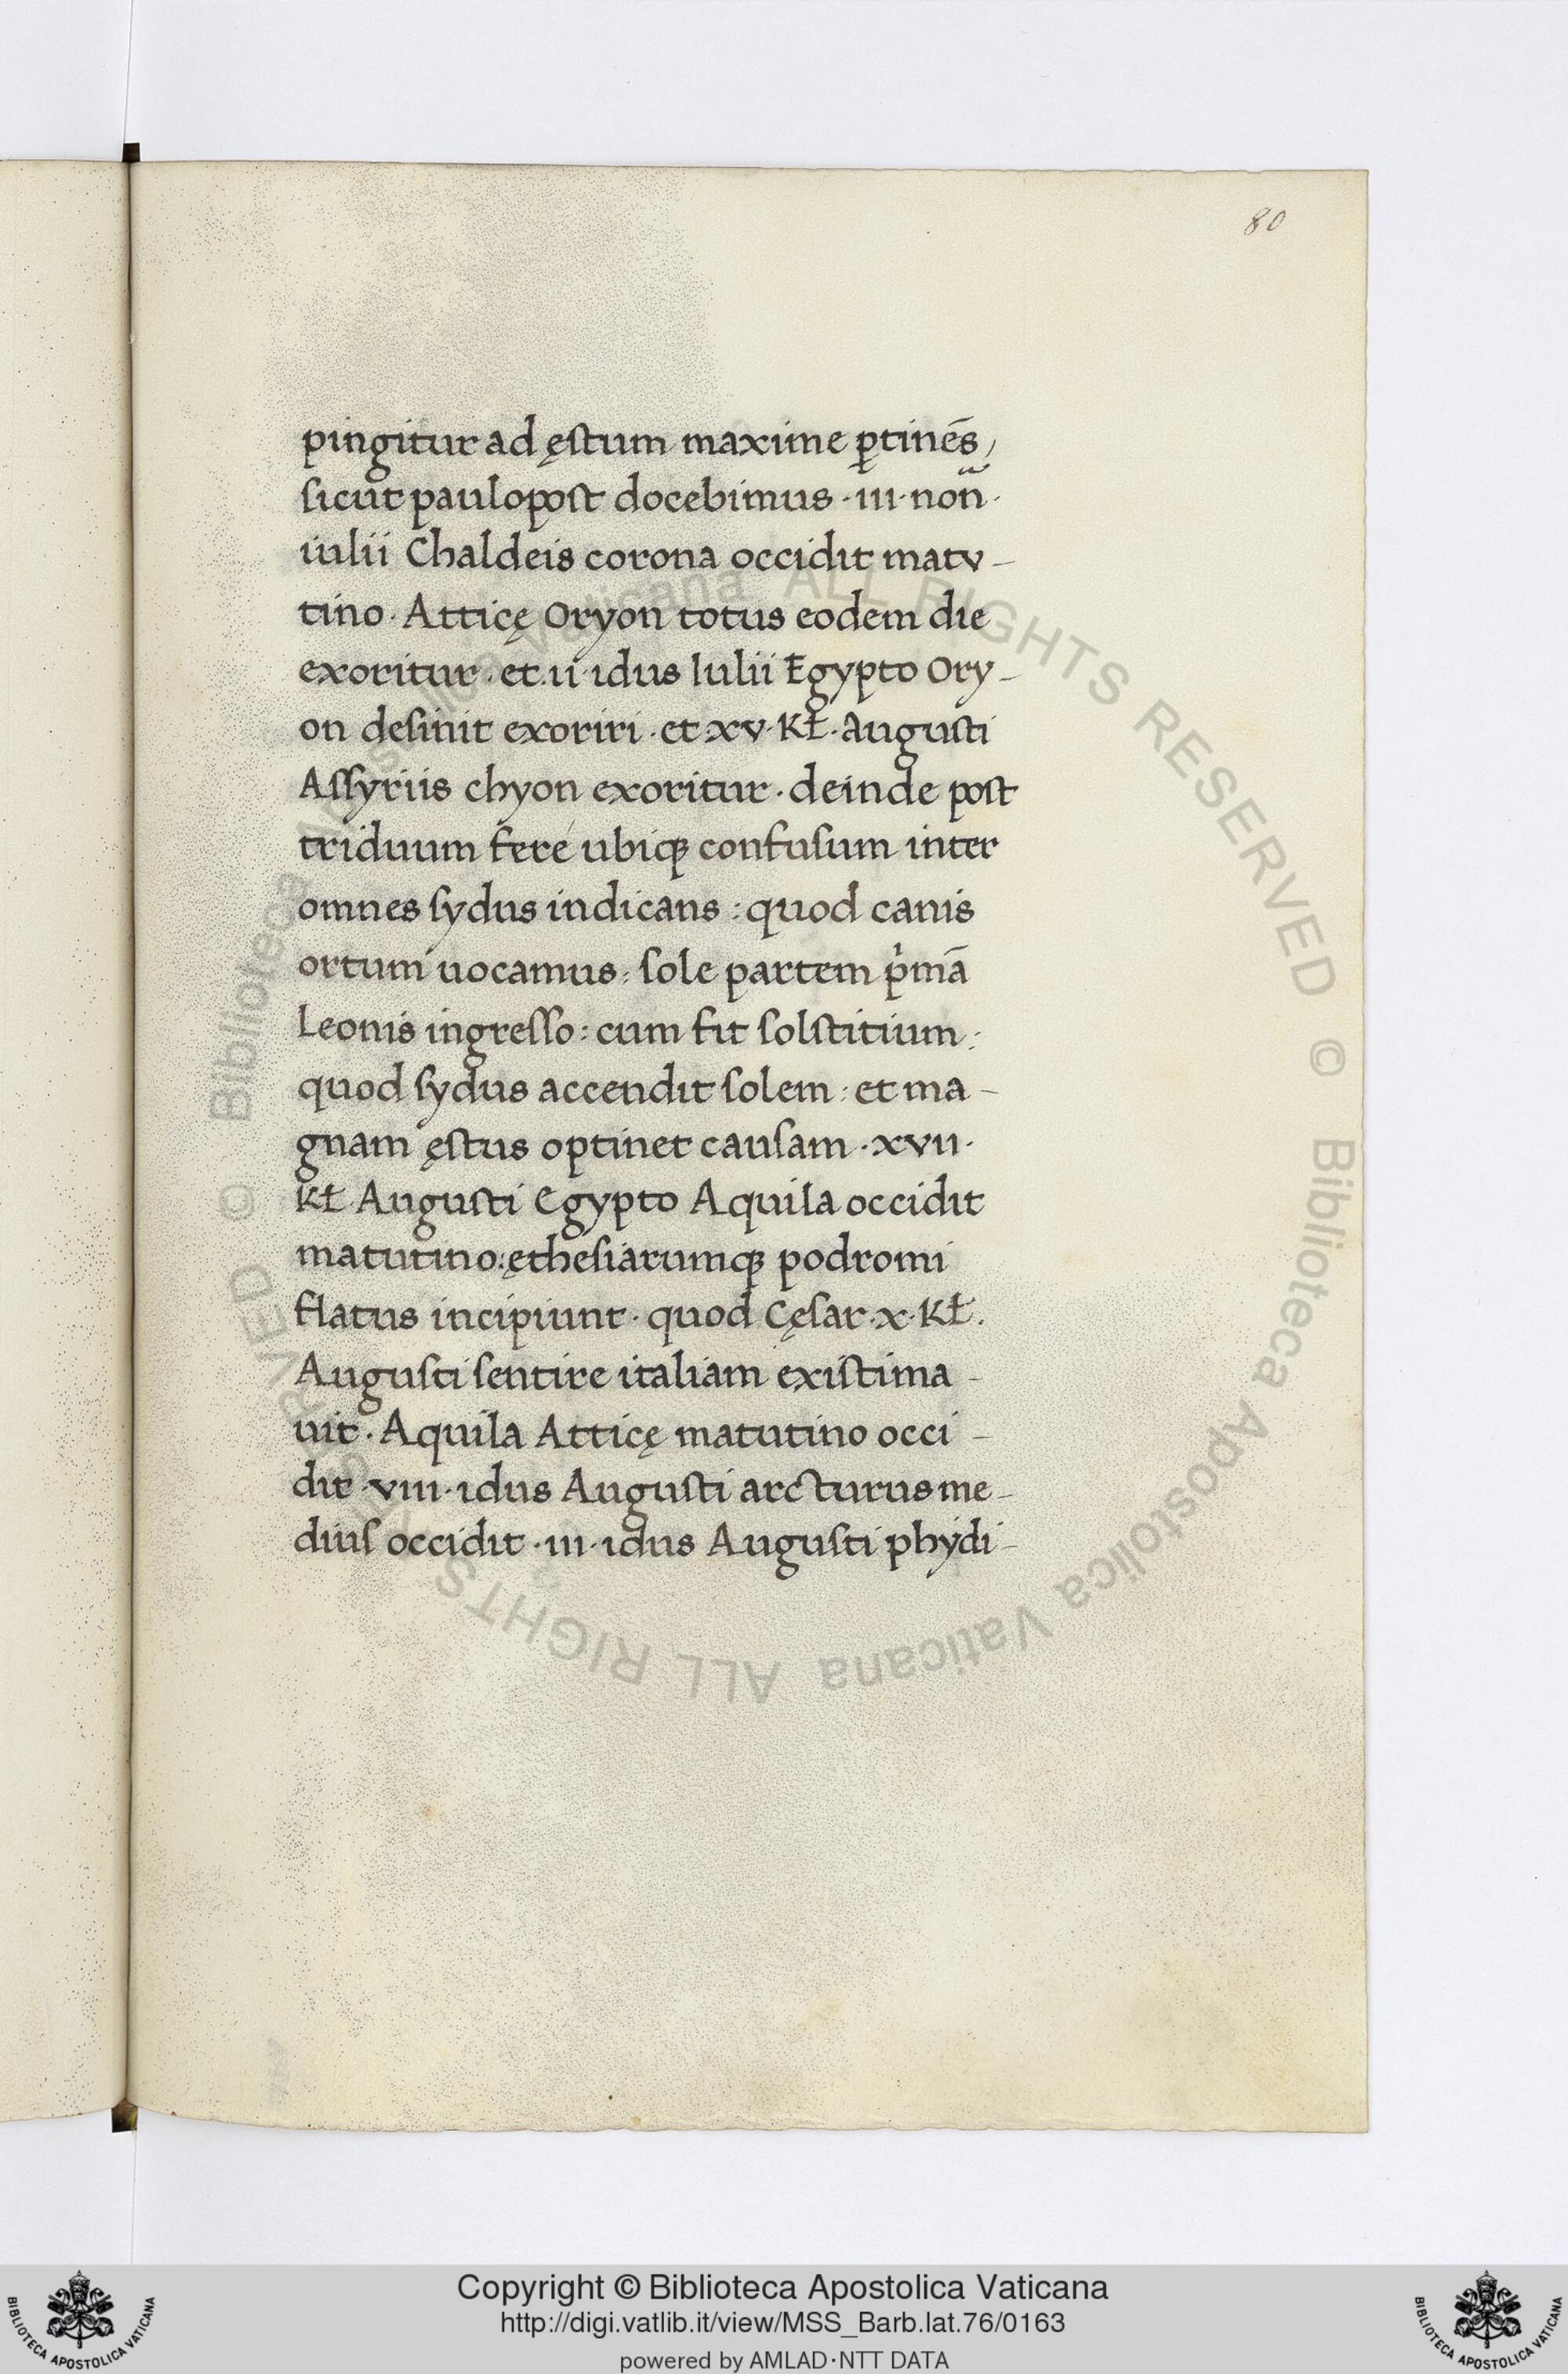 80
pingitur ad ęstum maxime ꝑtinēs,
sicut paulopost docebimus · iii · non̄ ·
iulii Chaldeis corona occidit matv-
tino · Atticę Oryon totus eodem die
exoritur · et · ii · idus Iulii Egypto Ory-
on desinit exoriri · et xv · Kł · Augusti
Assyriis chyon exoritur · deinde post
triduum feré ubiqꝫ confusum inter
omnes sydus indicans : quod canis
ortum uocamus : sole partem pͥmā
Leonis ingresso : cum fit solstitium :
quod sydus accendit solem : et ma-
gnam ęstus optinet causam · xvii ·
Kł · Augusti Egypto Aquila occidit
matutino : ęthesiarumqꝫ podromi
flatus incipiunt · quod Cęsar · x · Kł ·
Augusti sentire italiam existima-
uit · Aquila Atticę matutino occi-
dit · viii · idus Augusti arcturus me-
dius occidit · iii · idus Augusti phydi-
© Biblioteca Apostolica Vaticana ALL RIGHTS RESERVED © Biblioteca Apostolica Vaticana ALL RIGHTS RESERVED
Copyright © Biblioteca Apostolica Vaticana
http://digi.vatlib.it/view/MSS_Barb.lat.76/0163
powered by AMLAD·NTT DATA
BIBLIOTECA APOSTOLICA VATICANA
BIBLIOTECA APOSTOLICA VATICANA